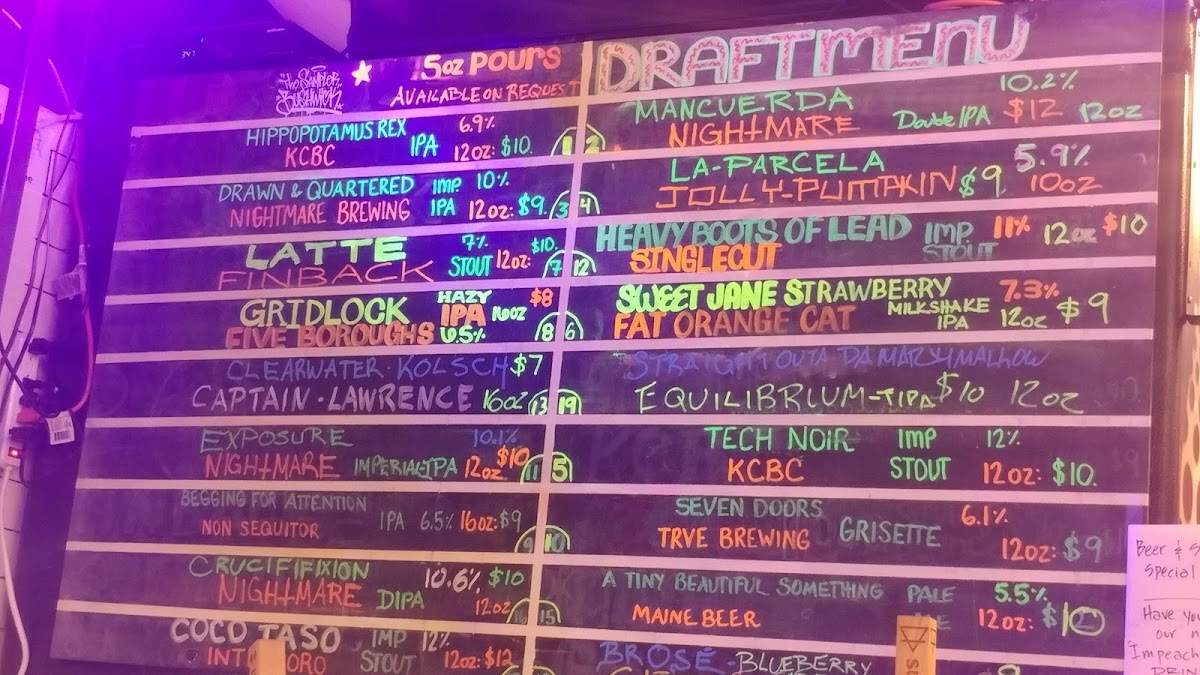 347
The Sampler
Bushwick
5oz POURS
AVAILABLE ON REQUEST
DRAFT MENU
HIPPOPOTAMUS REX 6.9%
KCBC IPA 12oz: $10.
DRAWN & QUARTERED IMP. 10%
NIGHTMARE BREWING IPA 12oz: $9. 3
LATTE 7% $10.
FINBACK STOUT 12oz: 7
GRIDLOCK HAZY $8
IPA 16oz
FIVE BOROUGHS 6.5% 8
CLEARWATER · KOLSCH $7
CAPTAIN · LAWRENCE 16oz 13
EXPOSURE 10.1%
NIGHTMARE IMPERIAL-IPA 12oz $10 11
BEGGING FOR ATTENTION
NON SEQUITOR IPA 6.5% 16oz: $9 9
CRUCIFIFIXION 10.6% $10
NIGHTMARE DIPA 12oz 16
COCO TASO IMP 12%
STOUT 12oz: $12
MANCUERDA 10.2%
2 NIGHTMARE Double IPA $12 12oz
LA-PARCELA 5.9%
4 JOLLY-PUMPKIN $9 10oz
HEAVY BOOTS OF LEAD IMP 11% 12oz $10
12 SINGLECUT STOUT
SWEET JANE STRAWBERRY 7.3%
6 FAT ORANGE CAT MILKSHAKE IPA 12oz $9
STRAIGHT OUTA DA MARSHMALLOW
19 EQUILIBRIUM-TIPA $10 12oz
TECH NOIR IMP 12%
5 KCBC STOUT 12oz: $10.
SEVEN DOORS 6.1%
10 TRVE BREWING GRISETTE 12oz: $9
A TINY BEAUTIFUL SOMETHING PALE 5.5%
15 MAINE BEER 12oz: $10
BROSÉ - BLUEBERRY
Beer & S
Special
Have you
our n
"Impeach
DRIN